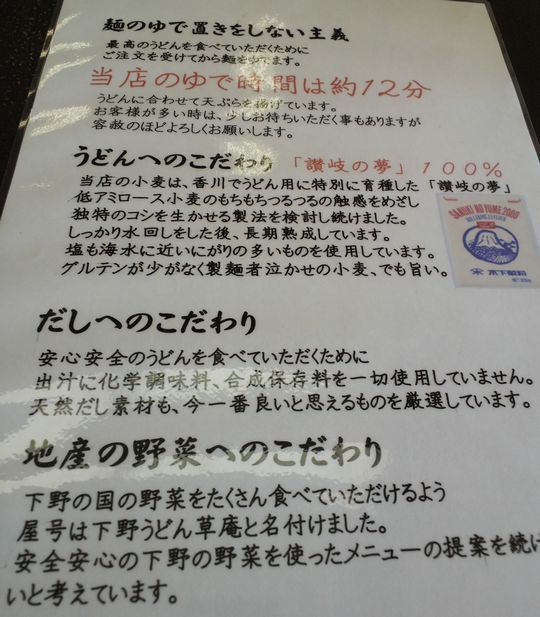 麺のゆで置きをしない主義
最高のうどんを食べていただくために
ご注文を受けてから麺をゆでます。
当店のゆで時間は約12分
うどんに合わせて天ぷらを揚げています。
お客様が多い時は、少しお待ちいただく事もありますが
容赦のほどよろしくお願いします。
うどんへのこだわり 「讃岐の夢」100%
当店の小麦は、香川でうどん用に特別に育種した「讃岐の夢」
低アミロース小麦のもちもちつるつるの触感をめざし
独特のコシを生かせる製法を検討し続けました。
しっかり水回しをした後、長期熟成しています。
塩も海水に近いにがりの多いものを使用しています。
グルテンが少がなく製麺者泣かせの小麦、でも旨い。
SANUKI NO YUME 2000
木下製粉
だしへのこだわり
安心安全のうどんを食べていただくために
出汁に化学調味料、合成保存料を一切使用していません。
天然だし素材も、今一番良いと思えるものを厳選しています。
地産の野菜へのこだわり
下野の国の野菜をたくさん食べていただけるよう
屋号は下野うどん草庵と名付けました。
安全安心の下野の野菜を使ったメニューの提案を続け
いと考えています。